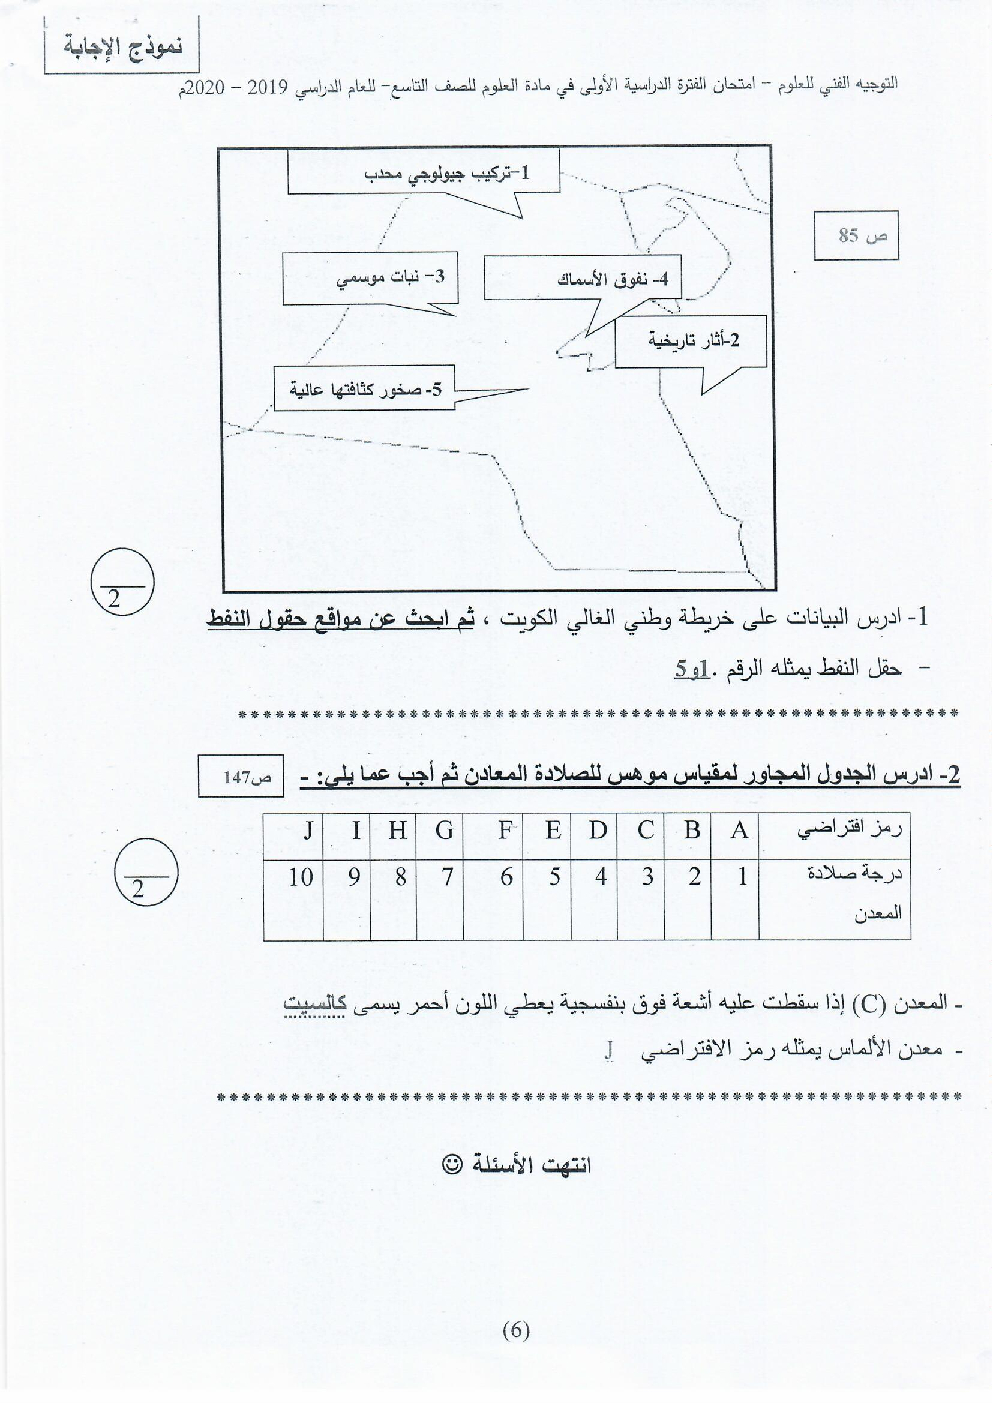 نموذج الإجابة
التوجيه الفني للعلوم – امتحان الفترة الدراسية الأولى في مادة العلوم للصف التاسع– للعام الدراسي 2019 – 2020م
1–تركيب جيولوجي محدب
ص 85
3– نبات موسمي
4- نفوق الأسماك
2-أثار تاريخية
5- صخور كثافتها عالية
2
1- ادرس البيانات على خريطة وطني الغالي الكويت ، ثم ابحث عن مواقع حقول النفط
– حقل النفط يمثله الرقم .1و5
************************************************************
2- ادرس الجدول المجاور لمقياس موهس للصلادة المعادن ثم أجب عما يلي: -
ص147
رمز افتراضي A B C D E F G H I J
درجة صلادة المعدن 1 2 3 4 5 6 7 8 9 10
2
- المعدن (C) إذا سقطت عليه أشعة فوق بنفسجية يعطي اللون أحمر يسمى كالسيت
- معدن الألماس يمثله رمز الافتراضي J
**************************************************************
انتهت الأسئلة ☺
(6)